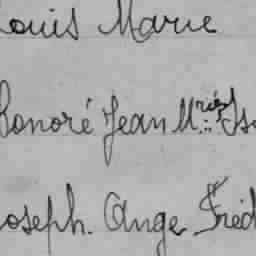 Louis Marie
Honoré Jean M.rie Is
Joseph. Ange Fréd